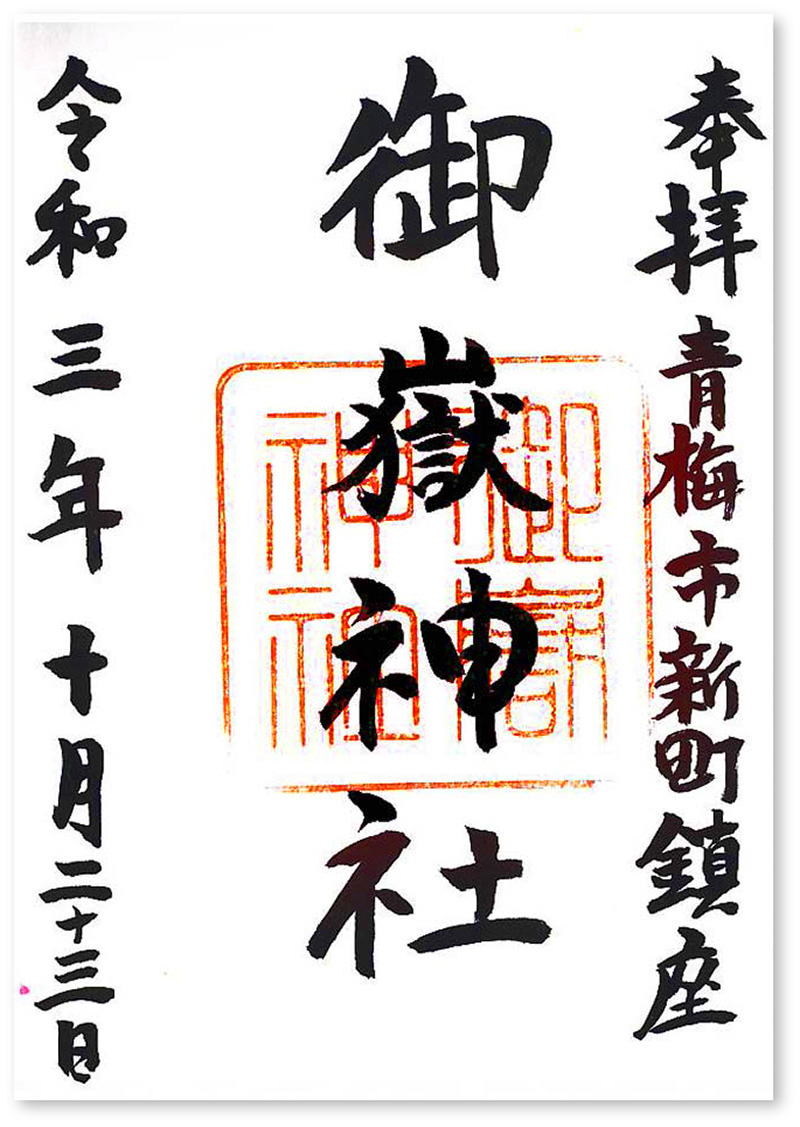 奉拝 青梅市新町鎮座
御嶽神社
御嶽
神社
令和三年十月二十三日